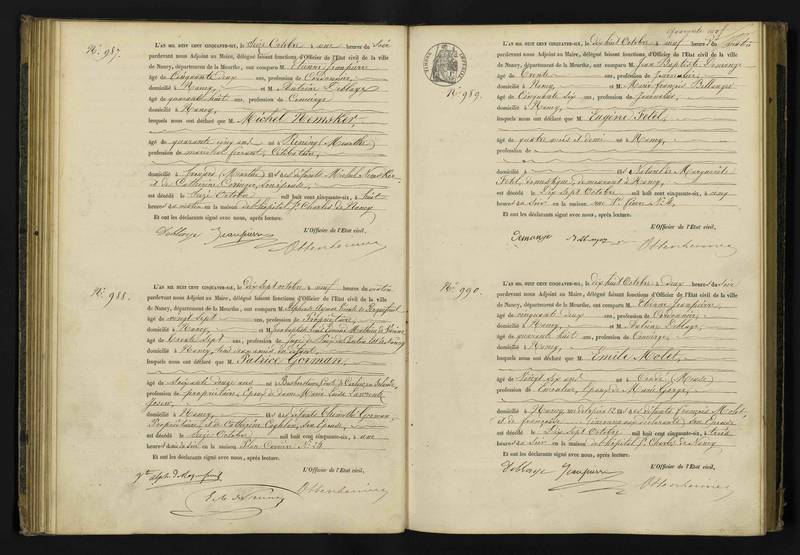 N.º 987.
L'AN MIL HUIT CENT CINQUANTE-SIX, le Seize Octobre à une heures du Soir
pardevant nous Adjoint au Maire, délégué faisant fonctions d'Officier de l'Etat civil de la ville
de Nancy, département de la Meurthe, ont comparu M. Etienne Jeanpierre
âgé de Cinquante deux ans, profession de Cordonnier,
domicilié à Nancy, et M. Antoine Deblaye
âgé de quarante huit ans, profession de Concierge
domicilié à Nancy,
lesquels nous ont déclaré que M. Michel Nemsker,
âgé de quarante cinq ans né à Réning (Meurthe)
profession de maréchal ferrant, Célibataire,
domicilié à (Meurthe) fils des défunts Michel Nemsker
et de Catherine son épouse,
est décédé le Seize Octobre mil huit cent cinquante-six, à huit
heures du matin en la maison de l'hôpital St. Charles de Nancy
Et ont les déclarants signé avec nous, après lecture.
L'Officier de l'Etat civil,
Deblaye Jeanpierre
Ottenheimer
N.º 988.
L'AN MIL HUIT CENT CINQUANTE-SIX, le Dix sept octobre à neuf heures du matin
pardevant nous Adjoint au Maire, délégué faisant fonctions d'Officier de l'Etat civil de la ville
de Nancy, département de la Meurthe, ont comparu M. Alphonse
âgé de vingt sept ans, profession de Propriétaire,
domicilié à Nancy, et M. Jean Baptiste
âgé de trente sept ans, profession de Juge
domicilié à Nancy
lesquels nous ont déclaré que M. Patrice Gorman,
âgé de Soixante douze ans né à
profession de propriétaire, époux de dame Marie Louise
domicilié à Nancy, fils des défunts Gorman,
Propriétaire, et de Catherine son épouse,
est décédé le Seize Octobre mil huit cent cinquante-six, à une
heures du soir en la maison Rue Callot N.º 4.
Et ont les déclarants signé avec nous, après lecture.
L'Officier de l'Etat civil,
Ottenheimer
quarante neuf
N.º 989.
L'AN MIL HUIT CENT CINQUANTE-SIX, le dix huit Octobre à neuf heures du matin
pardevant nous Adjoint au Maire, délégué faisant fonctions d'Officier de l'Etat civil de la ville
de Nancy, département de la Meurthe, ont comparu M. Jean Baptiste Demange
âgé de Trente ans, profession de Journalier,
domicilié à Nancy, et M. Marie François Bellanger
âgé de Cinquante six ans, profession de Journalier,
domicilié à Nancy,
lesquels nous ont déclaré que M. Eugène Fetet,
âgé de quatre mois et demi né à Nancy,
profession de
domicilié à fils naturel de Marguerite
Fetet, domestique, demeurant à Nancy,
est décédé le Dix sept Octobre mil huit cent cinquante-six, à cinq
heures du soir en la maison rue St. N.º 4.
Et ont les déclarants signé avec nous, après lecture.
L'Officier de l'Etat civil,
Demange
Ottenheimer
N.º 990.
L'AN MIL HUIT CENT CINQUANTE-SIX, le dix huit Octobre à deux heures du soir
pardevant nous Adjoint au Maire, délégué faisant fonctions d'Officier de l'Etat civil de la ville
de Nancy, département de la Meurthe, ont comparu M. Etienne Jeanpierre
âgé de cinquante deux ans, profession de Cordonnier,
domicilié à Nancy et M. Antoine Deblaye
âgé de quarante huit ans, profession de Concierge,
domicilié à Nancy,
lesquels nous ont déclaré que M. Emile Molet,
âgé de Vingt six ans né à Condé (Meuse)
profession de époux de Marie George,
domicilié à Nancy, fils des défunts François Molet
et de françoise son épouse
est décédé le Dix sept Octobre mil huit cent cinquante-six, à trois
heures du soir en la maison de l'hôpital St. Charles de Nancy
Et ont les déclarants signé avec nous, après lecture.
L'Officier de l'Etat civil,
Deblaye Jeanpierre
Ottenheimer